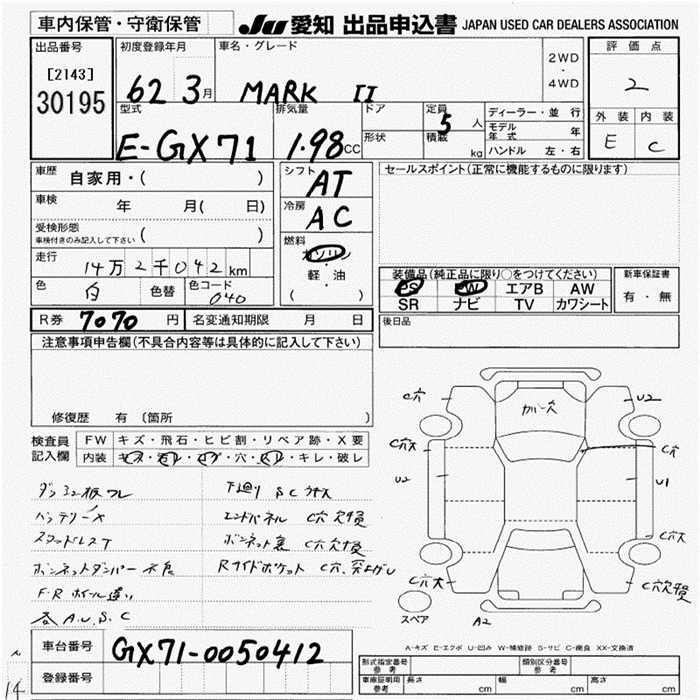 車内保管・守衛保管
JU 愛知 出品申込書 JAPAN USED CAR DEALERS ASSOCIATION
出品番号
[2143]
30195
初度登録年月
62 3月
車名・グレード
MARK II
2WD
・
4WD
評価点
2
外装 内装
E C
型式
E-GX71
排気量
1.98cc
ドア
形状
定員 5 人
積載 kg
ディーラー・並行
モデル年式 年
ハンドル 左・右
車歴 自家用・( )
車検 年 月( 日)
受検形態
車検付きのみ記入して下さい ( )
走行 14万2千042km
色 白 色替 色コード 040
シフト
AT
冷房
AC
燃料
ガソリン
・
軽・油
( )
セールスポイント(正常に機能するものに限ります)
装備品(純正品に限り○をつけてください)
PS PW エアB AW
SR ナビ TV カワシート
新車保証書
有・無
R券 7070 円 名変通知期限 月 日
後日品
注意事項申告欄(不具合内容等は具体的に記入して下さい)
修復歴 有〔箇所 〕
検査員
記入欄
FW キズ・飛石・ヒビ割・リペア跡・X要
内装
穴・
・キレ・破レ
下廻り S C
エンドパネル C穴
ボンネット裏 C穴
Rサイドポケット C穴
F・R ホイール違い
各 A.U.S.C
C穴
U2
C穴大
C穴
U2
U1
C穴大
C穴大
スペア
A2
A-キズ E-エクボ U-凹み W-補修跡 S-サビ C-腐食 XX-交換済
車台番号 GX71-0050412
登録番号
型式指定番号
参考
類別区分番号
参考
車庫証明用
参考
長さ cm 幅 cm 高さ cm
14